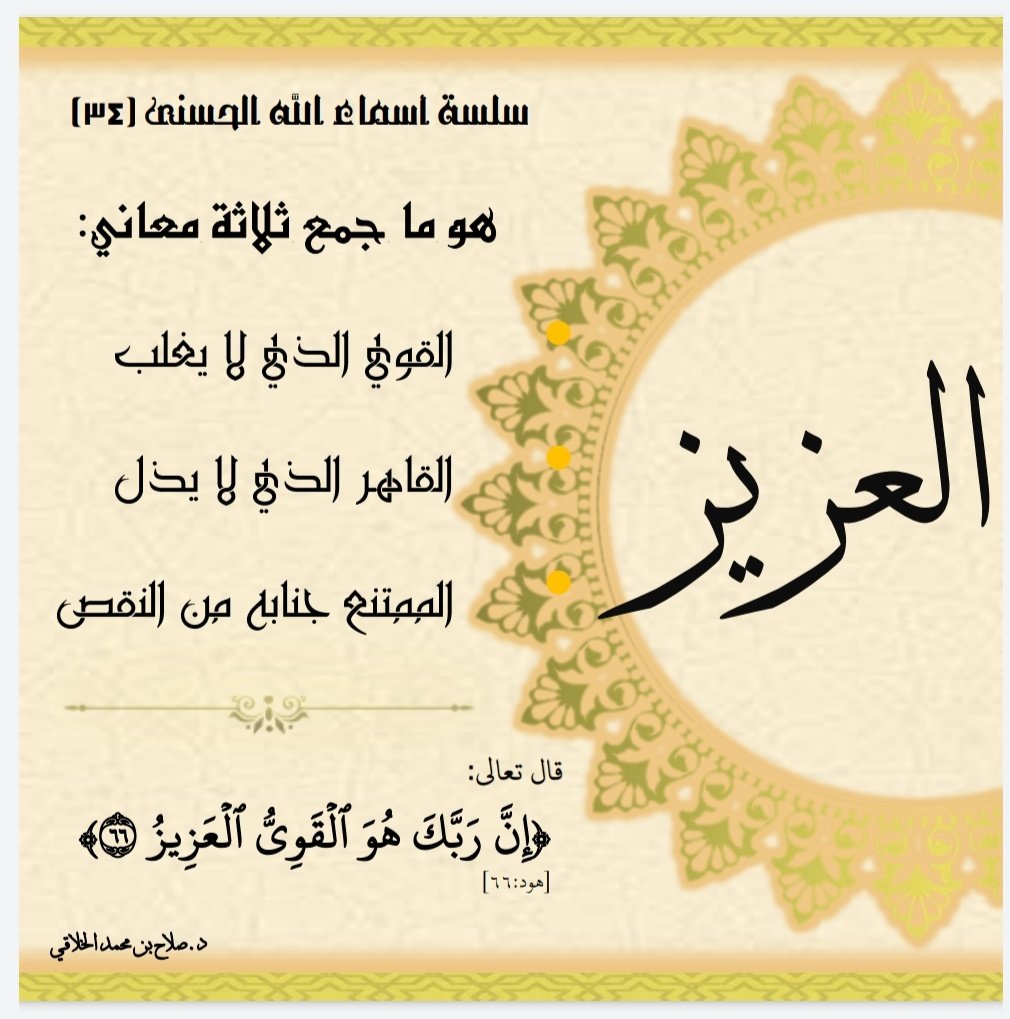 سلسة اسماء الله الحسنى (٣٤)
هو ما جمع ثلاثة معاني:
القوي الذي لا يغلب
القاهر الذي لا يذل
الممتنع جنابه من النقص
العزيز
قال تعالى:
﴿إِنَّ رَبَّكَ هُوَ ٱلْقَوِىُّ ٱلْعَزِيزُ ٦٦﴾
[هود:٦٦]
د.صلاح بن محمد الخلاقي